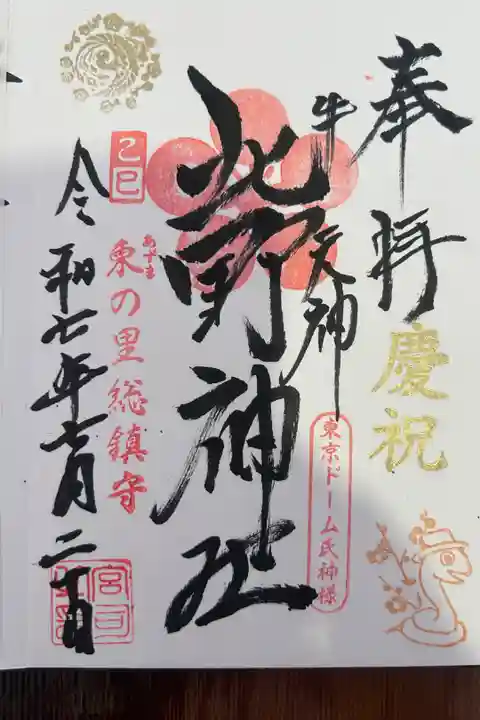 奉拝
慶祝
牛天神
東京ドーム氏神様
北野神社
乙巳
あずま
東の里総鎮守
令和七年一月二十日